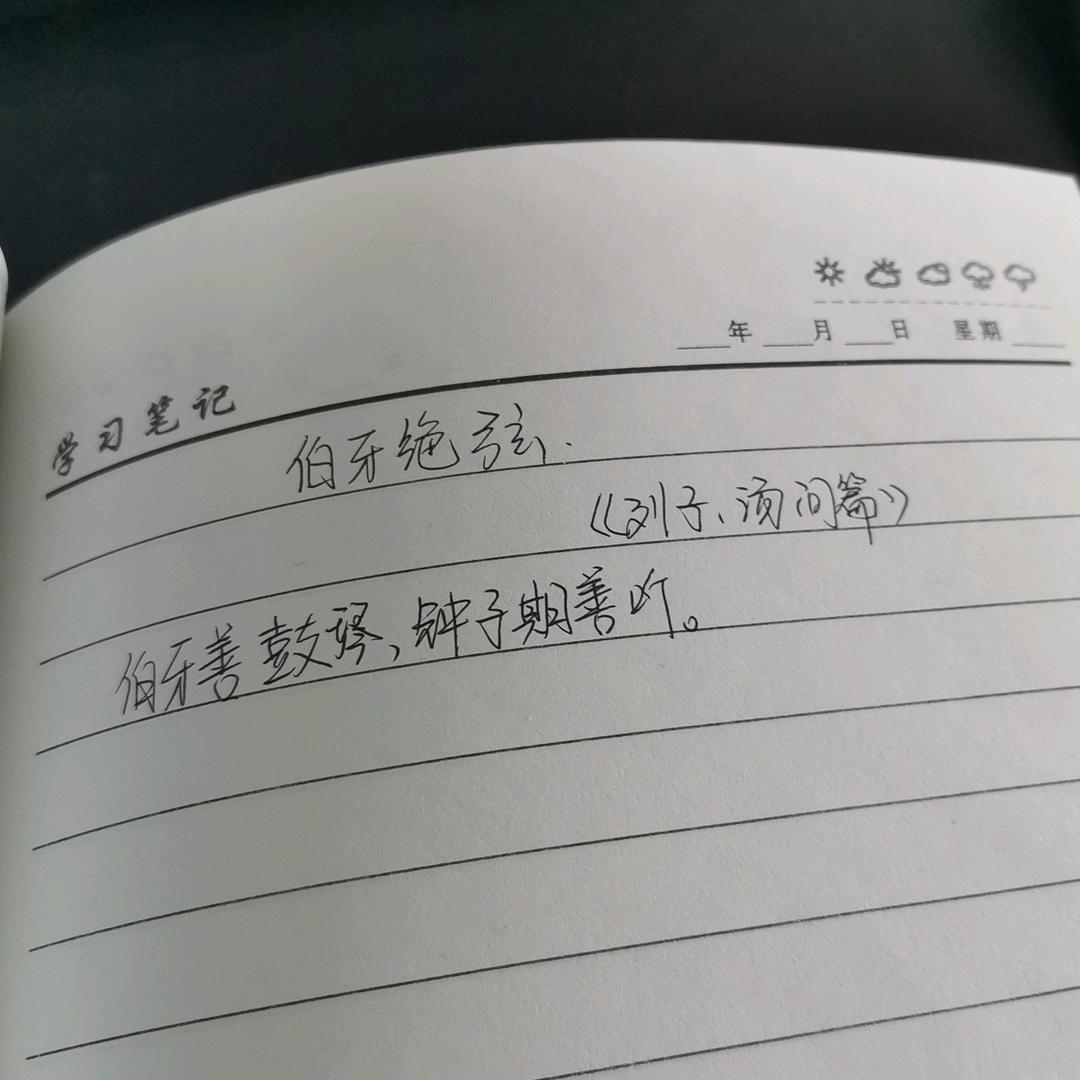 ____年 ____月 ____日 星期 ____
学习笔记
伯牙绝弦.
《列子、汤问篇》
伯牙善鼓琴,钟子期善听。